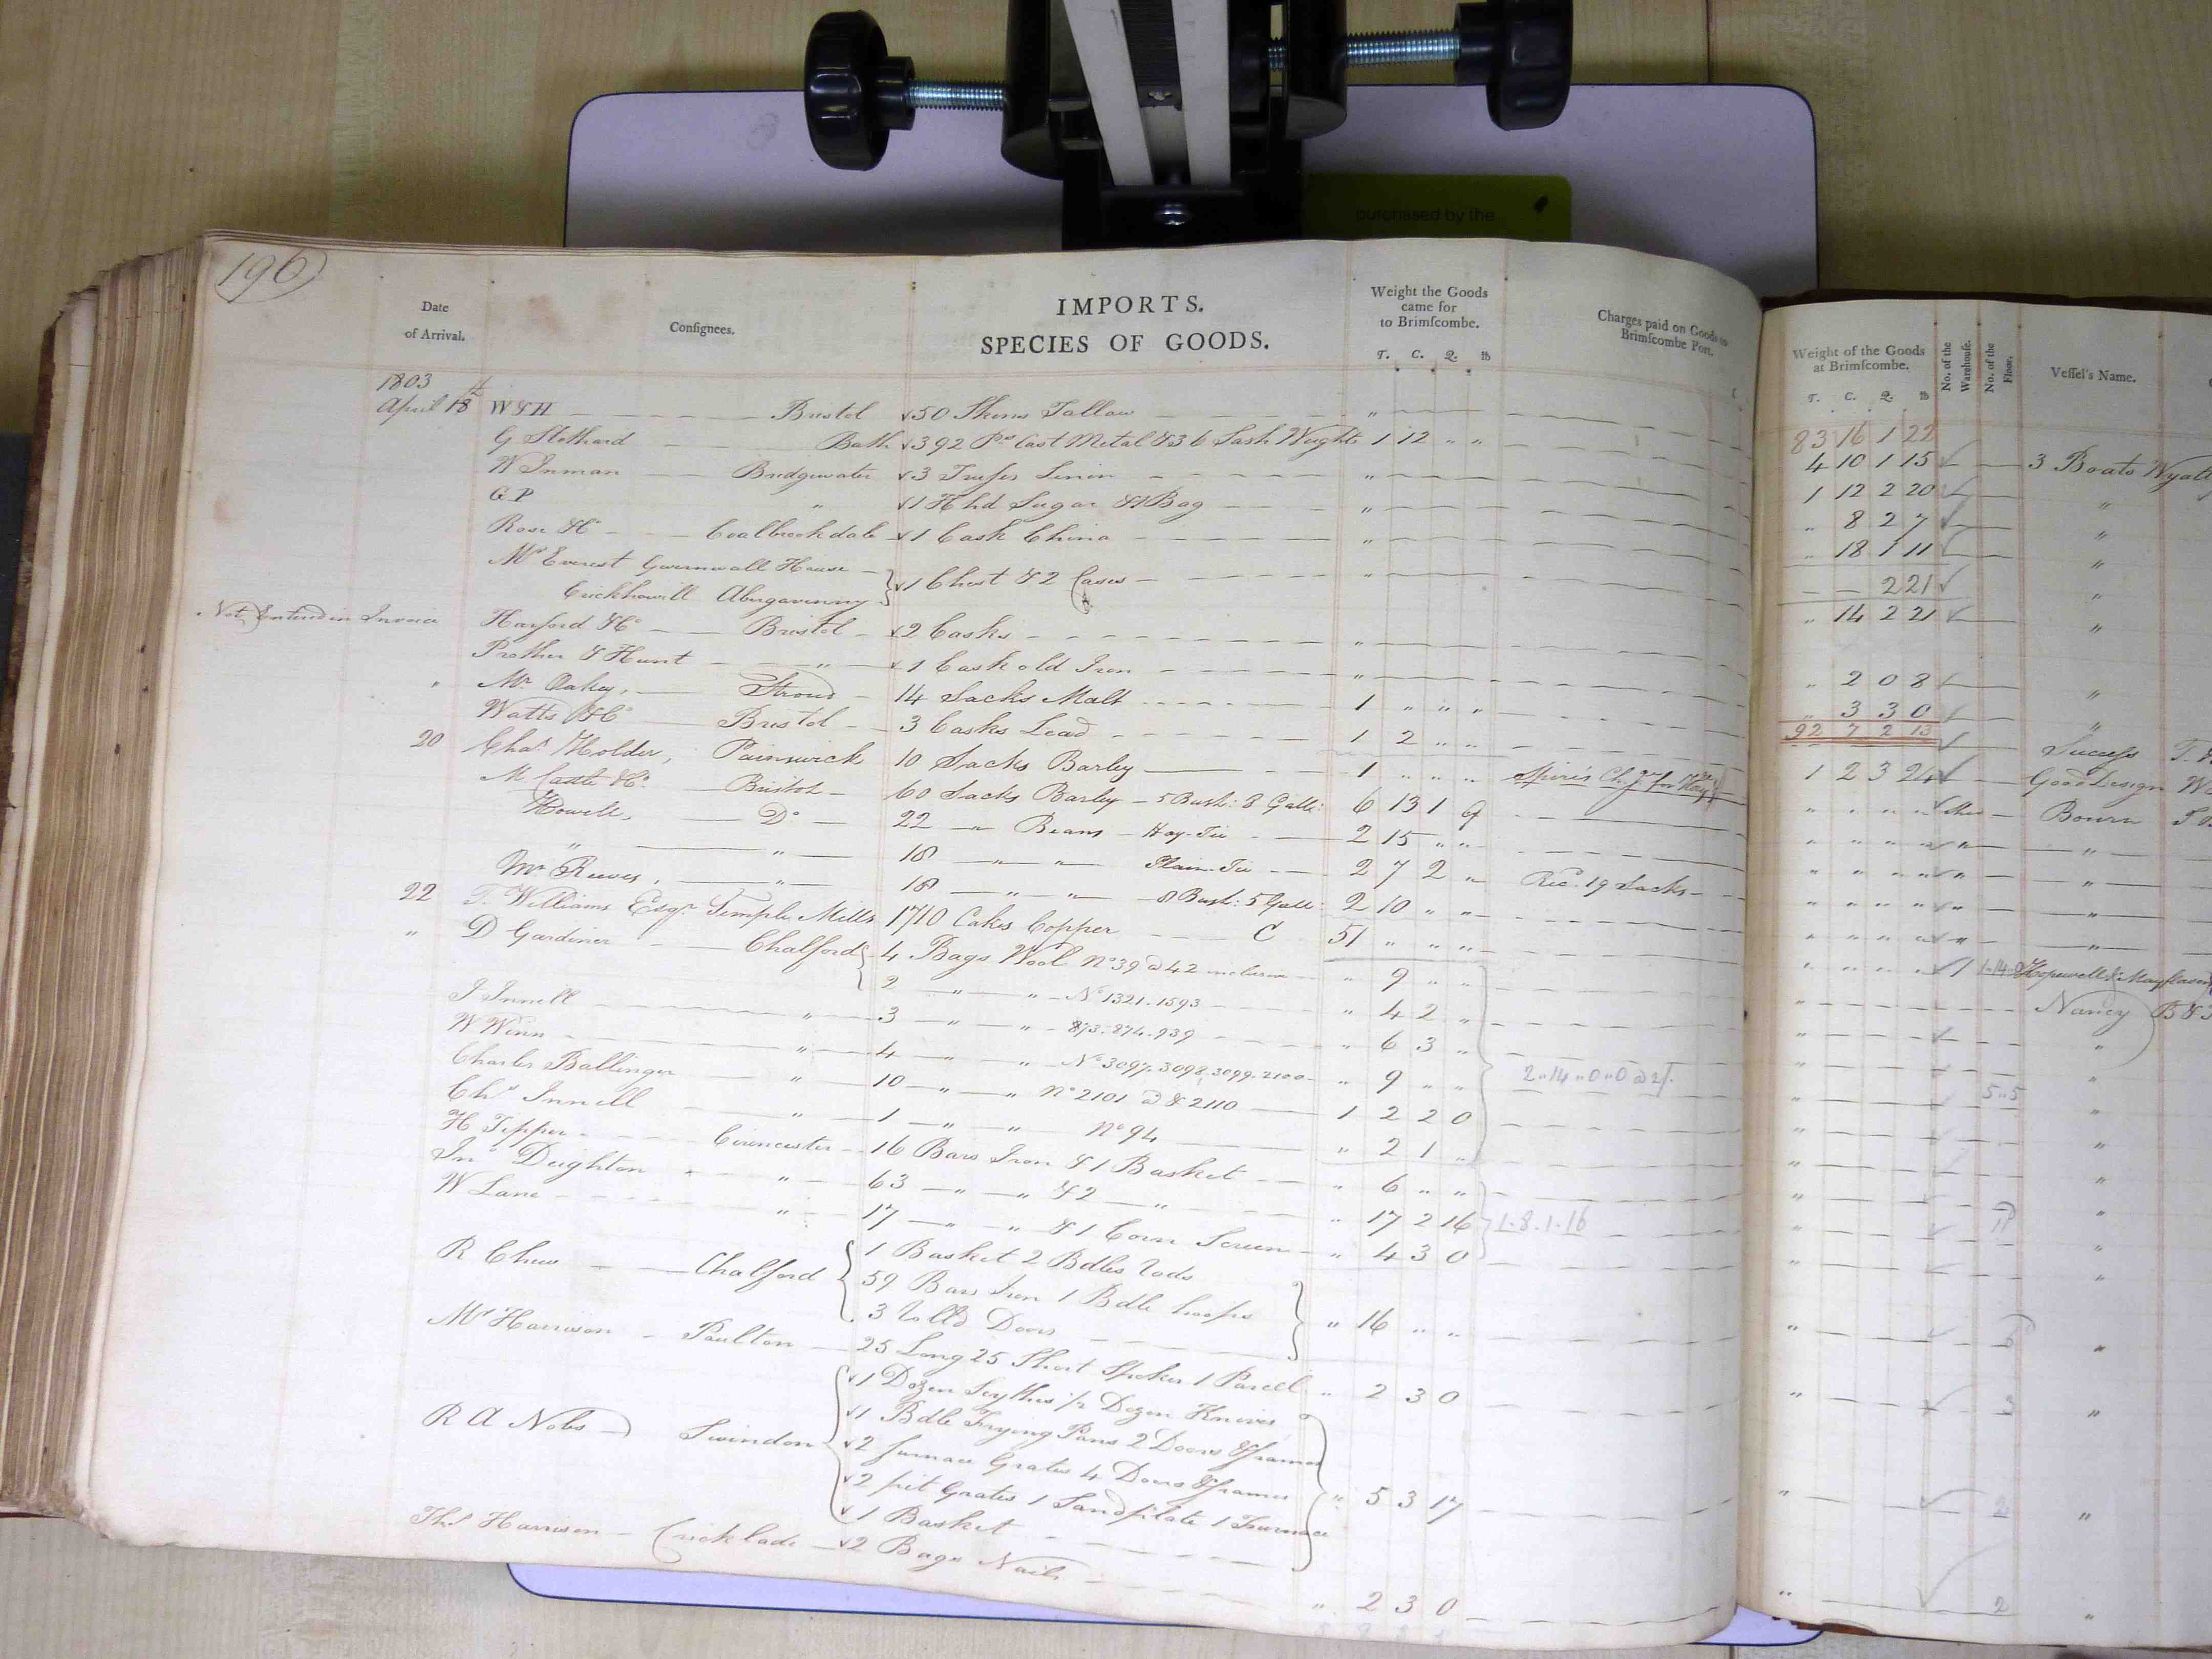 purchased by the
196
Date of Arrival.
Consignees.
IMPORTS.
SPECIES OF GOODS.
Weight the Goods came for to Brimscombe.
T. C. Q. lb
Charges paid on Goods to Brimscombe Port.
Weight of the Goods at Brimscombe.
T. C. Q. lb
No. of the Warehouse.
No. of the Floor.
Vessel's Name.
1803
83 16 1 22
April 18th W & H Bristol 50 Skins Tallow " 4 10 1 15 3 Boats Wyatt
G Stothard Bath 392 Ps Cast Metal & 36 Sash Weights 1 12 " " 1 12 2 20 "
W Inman Bridgwater 3 Trusses Linen " " 8 2 7 "
G P " 1 Hhd Sugar & 1 Bag " " 18 1 11 "
Rose & Co Coalbrookdale 1 Cask China " 2 21 "
Mrs Everest Gwernwall House
Crickhowill Abergavenny 1 Chest & 2 Cases " " 14 2 21 "
Not Entered in Invoice Harford & Co Bristol 2 Casks " " 2 0 8 "
Prother & Hunt " 1 Cask old Iron " " 3 3 0 "
92 7 2 13
" Mr Oakey, Stroud 14 Sacks Malt 1 " " " Success
Watts & Co Bristol 3 Casks Lead 1 2 " " 1 2 3 24 Good Design
20 Chas Holder, Painswick 10 Sacks Barley 1 " " " Bourn
M Castle & Co Bristol 60 Sacks Barley - 5 Bush: 8 Gall: 6 13 1 9 "
Howell, Do 22 " Beans - Hay-Tie 2 15 " " "
" " 18 " " Plain-Tie 2 7 2 " Rec. 19 Sacks "
Mr Reeves, " 18 " " 8 Bush: 5 Gall: 2 10 " " "
22 T. Williams Esqr. Temple Mills 1710 Cakes Copper C 51 " " " Hopewell & Mayflower
" D Gardiner Chalford 4 Bags Wool No 39 @ 42 inclusive " 9 " " Nancy
2 " " No 1321. 1593 " 4 2 " "
J Innell " 3 " " 873. 874. 939 " 6 3 " "
W Winn " 4 " " No 3097. 3098. 3099. 2100 " 9 " " 2 " 14 " 0 " 0 @ 2/. 5 " 5 "
Charles Ballinger " 10 " " No 2101 @ & 2110 1 2 2 0 "
Chs Innell " 1 " " No 94 " 2 1 " "
H Tipper Cirencester 16 Bars Iron & 1 Basket " 6 " " "
Jno Deighton " 63 " " & 2 " " 17 2 16 1. 8. 1. 16 "
W Lane " 17 " " & 1 Corn Screen " 4 3 0 "
R Chew Chalford 1 Basket 2 Bdles rods
59 Bars Iron 1 Bdle hoops " 16 " " "
3 roll'd Doors
Mr Harrison Paulton 25 Long 25 Short Spokes 1 Parcel " 2 3 0 "
1 Dozen Scythes 1/2 Dozen Knives
1 Bdle Frying Pans 2 Doors & frames
R A Nobs Swindon 2 furnace Grates 4 Doors & frames " 5 3 17 2 "
2 pit Grates 1 Sandplate 1 Furnace
1 Basket
Ths Harrison Cricklade 2 Bags Nails " 2 3 0 2 "